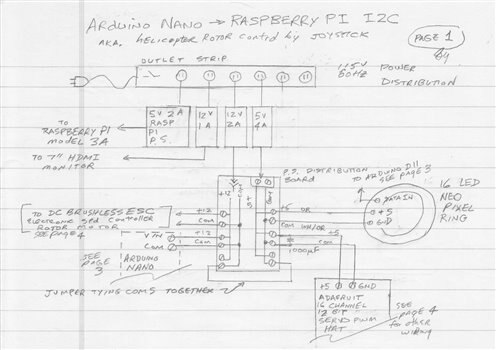 ARDUINO NANO → RASPBERRY PI I2C
AKA. HELICOPTER ROTOR CONTROL by JOYSTICK
PAGE 1
OUTLET STRIP
115V
60HZ
POWER
DISTRIBUTION
5V 2A
RASP
PI
P.S.
12V
1A
12V
2A
5V
4A
TO
RASPBERRY PI
MODEL 3A
TO 7" HDMI
MONITOR
P.S. DISTRIBUTION
BOARD
TO ARDUINO D11
SEE PAGE 3
+12
COM
+5
COM
16 LED
NEO
PIXEL
RING
DATA IN
+5
GND
TO DC BRUSHLESS ESC
ELECTRONIC SPD CONTROLLER
ROTOR MOTOR
SEE PAGE 4
+12
COM
+12
COM
+5 OR
COM WH/OR
+5
COM
1000µF
VIN
COM
ARDUINO
NANO
SEE
PAGE
3
JUMPER TYING COMS TOGETHER
+5
GND
ADAFRUIT
16 CHANNEL
12 BIT
SERVO PWM
HAT
SEE
PAGE 4
for other
wiring